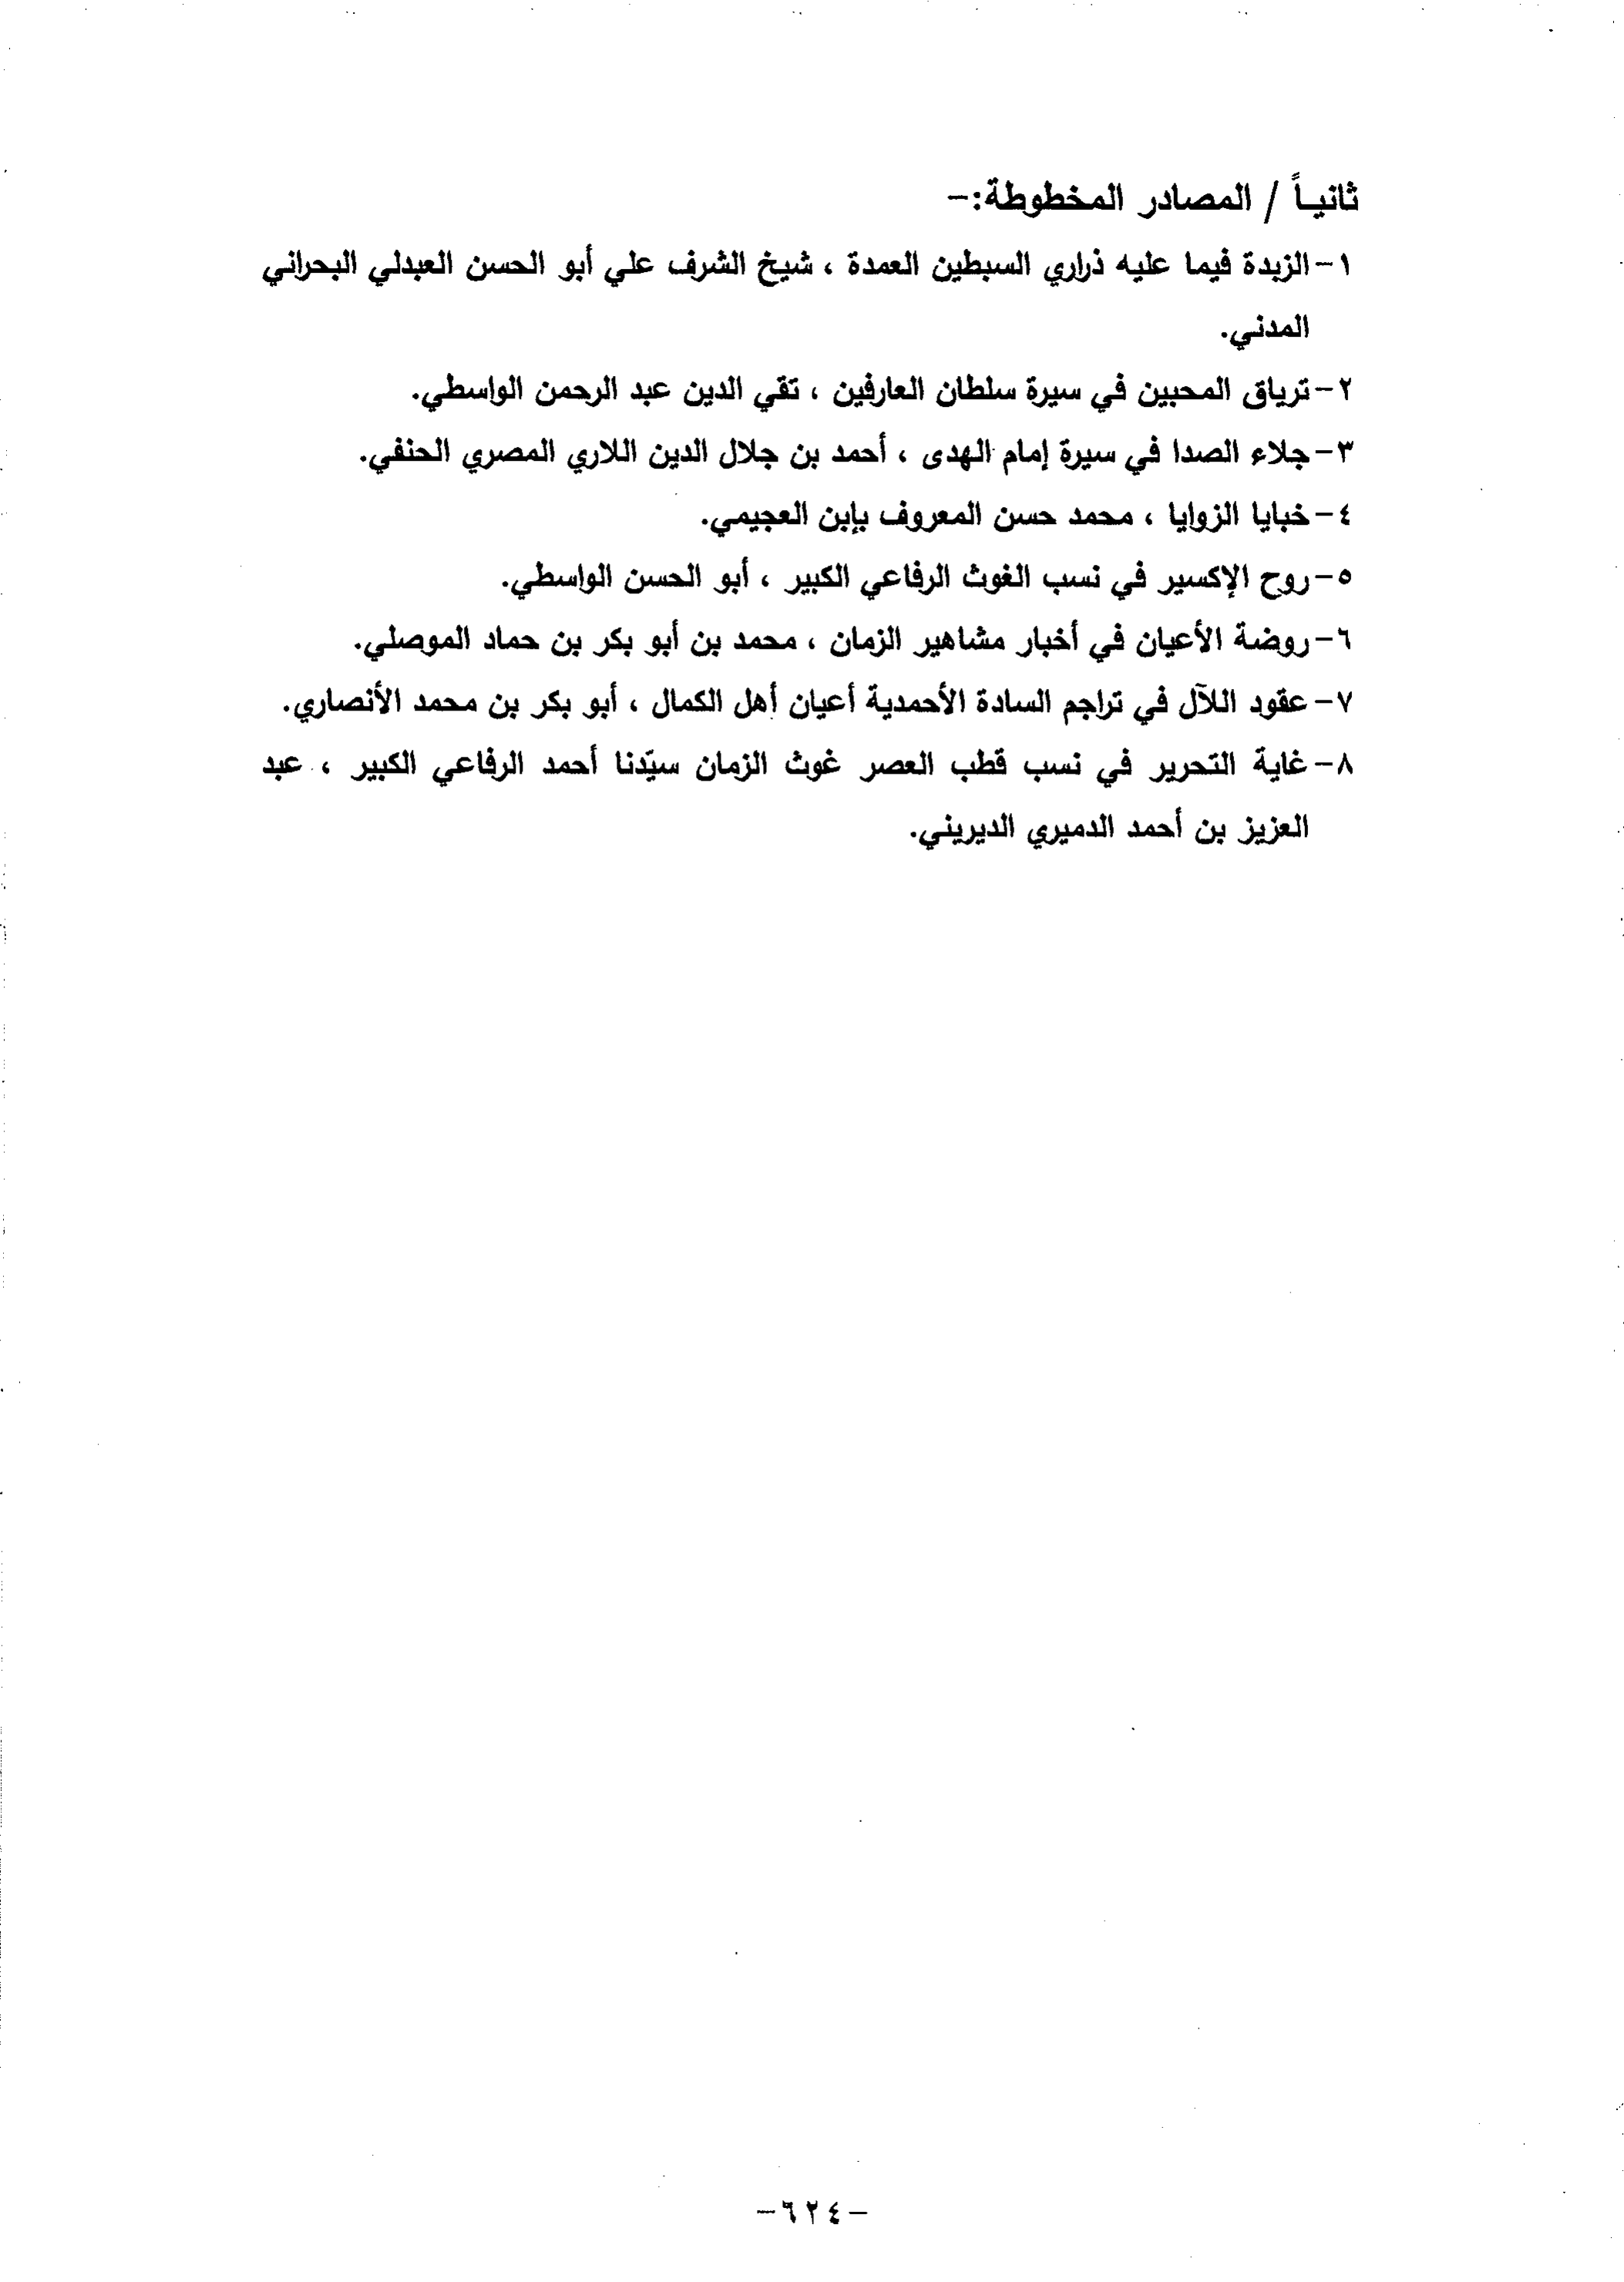 ثانياً / المصادر المخطوطة:-
١-الزبدة فيما عليه ذراري السبطين العمدة ، شيخ الشرف علي أبو الحسن العبدلي البحراني
المدني.
٢-ترياق المحبين في سيرة سلطان العارفين ، تقي الدين عبد الرحمن الواسطي.
٣-جلاء الصدا في سيرة إمام الهدى ، أحمد بن جلال الدين اللاري المصري الحنفي.
٤-خبايا الزوايا ، محمد حسن المعروف بإبن العجيمي.
٥-روح الإكسير في نسب الغوث الرفاعي الكبير ، أبو الحسن الواسطي.
٦-روضة الأعيان في أخبار مشاهير الزمان ، محمد بن أبو بكر بن حماد الموصلي.
٧-عقود اللآل في تراجم السادة الأحمدية أعيان أهل الكمال ، أبو بكر بن محمد الأنصاري.
٨-غاية التحرير في نسب قطب العصر غوث الزمان سيّدنا أحمد الرفاعي الكبير ، عبد
العزيز بن أحمد الدميري الديريني.
-٦٢٤-